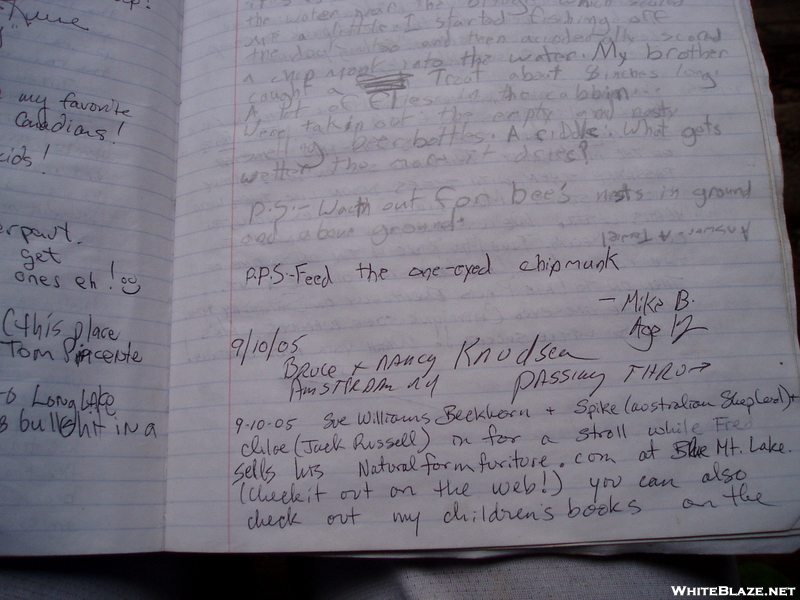 my favorite
Canadians!
kids!
get
ones eh!
(this place
Tom
Long Lake
in a
the water near the which scared
me a little. I started fishing off
the and then accidentally scared
a chip monk into the water. My brother
caught a Trout about 8 inches long.
A lot of Flies in the cabbin.
Were takin out the empty and nasty
smelling beer bottles. A riddle: What gets
wetter the more it dries?
P.S.- Wach out for bee's nests in ground
and above ground.
Answer- A Towel
P.P.S-Feed the one-eyed chipmunk
- Mike B.
Age 12
9/10/05
Bruce + Nancy Knudsen
Amsterdam NY Passing Thru →
9-10-05 Sue Williams Beckhorn + Spike (australian Shepherd) +
Chloe (Jack Russell) in for a stroll while Fred
sells his Naturalformfuriture.com at Blue Mt. Lake.
(check it out on the web!) you can also
check out my children's books on the
WhiteBlaze.net